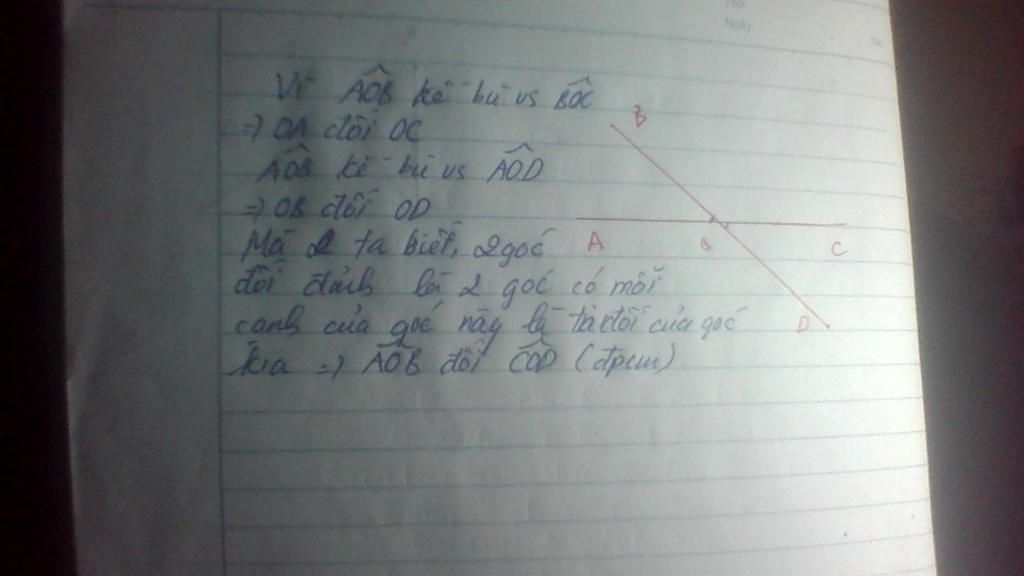 Vì AÔB kề bù vs BÔC
=> OA đối OC
AÔB kề bù vs AÔD
=> OB đối OD
Mà ta biết, 2 góc
đối đỉnh là 2 góc có mỗi
cạnh của góc này là tia đối của góc
kia => AÔB đối CÔD (đpcm)
B
A
O
C
D